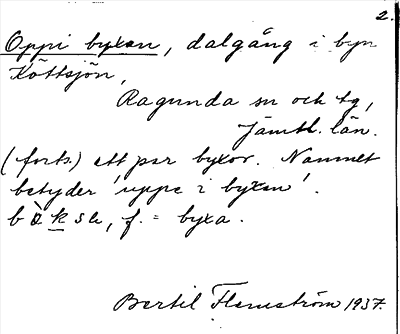 2.
Oppi byxan, dalgång i byn
Köttsjön,
Ragunda sn och tg,
Jämtl. län.
(forts.) ett par byxor. Namnet
betyder 'uppe i byxan'.
bòksa, f. = byxa.
Bertil Flemström 1937.